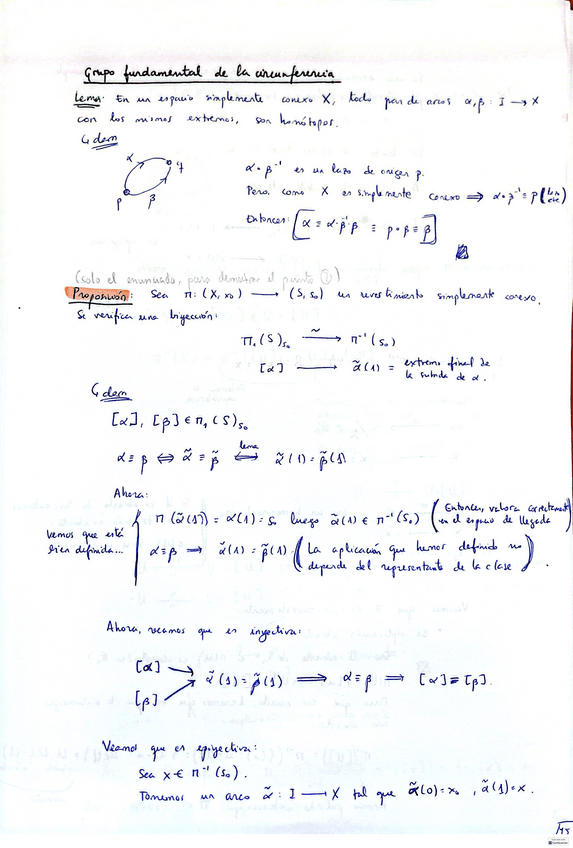 Grupo fundamental de la circunferencia
Lema: En un espacio simplemente conexo X, todo par de arcos α, β : I → X
con los mismos extremos, son homótopos.
↳ dem
α q
p β
α · β⁻¹ es un lazo de origen p.
Pero, como X es simplemente conexo ⟹ α · β⁻¹ ≡ p (lazo cte)
Entonces: [α ≡ α·β⁻¹·β ≡ p·β ≡ β]
(solo el enunciado, para demostrar el punto ①)
Proposición: Sea π: (X, x₀) → (S, s₀) un revestimiento simplemente conexo.
Se verifica una biyección:
Π₁(S)ₛ₀ ⥲ π⁻¹(s₀)
[α] → α̃(1) = extremo final de
la subida de α.
↳ dem
[α], [β] ∈ Π₁(S)ₛ₀
α ≡ β ⟺ α̃ ≡ β̃ ⟺ (lema) α̃(1) = β̃(1)
Ahora:
vemos que está
bien definida...
π(α̃(1)) = α(1) = s₀ luego α̃(1) ∈ π⁻¹(s₀) (Entonces, valora correctamente
en el espacio de llegada)
α ≡ β ⟹ α̃(1) = β̃(1). (La aplicación que hemos definido no
depende del representante de la clase).
Ahora, veamos que es inyectiva:
[α]
[β]
α̃(1) = β̃(1) ⟹ α ≡ β ⟹ [α] = [β].
Veamos que es epiyectiva:
Sea x ∈ π⁻¹(s₀).
Tomemos un arco α̃ : I → X tal que α̃(0) = x₀, α̃(1) = x.